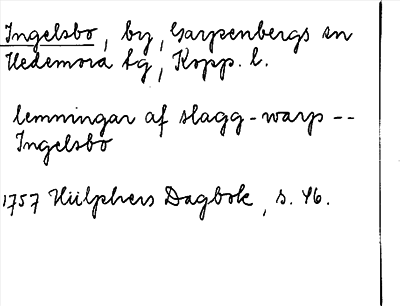 Ingelsbo, by, Garpenbergs sn
Hedemora tg, Kopp. l.
lemningar af slagg-warp --
Ingelsbo
1757 Hülphers Dagbok, s. 46.